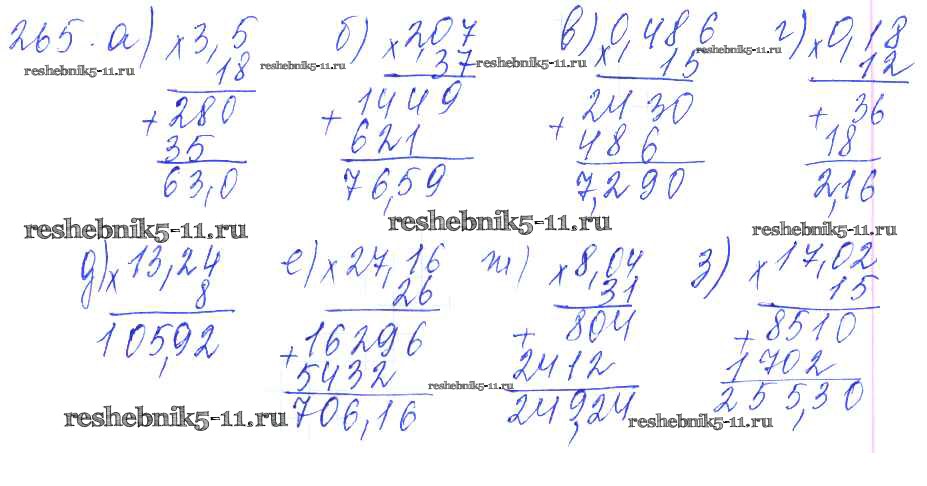 265. а) × 3,5 б) × 2,07 в) × 0,486 г) × 0,18
18 37 15 12
reshebnik5-11.ru reshebnik5-11.ru reshebnik5-11.ru reshebnik5-11.ru
+ 280 + 1449 + 2430 + 36
35 621 486 18
63,0 76,59 7,290 2,16
reshebnik5-11.ru reshebnik5-11.ru reshebnik5-11.ru
д) × 13,24 е) × 27,16 ж) × 8,04 з) × 17,02
8 26 31 15
105,92 + 16296 + 804 + 8510
5432 2412 1702
reshebnik5-11.ru
706,16 249,24 255,30
reshebnik5-11.ru reshebnik5-11.ru